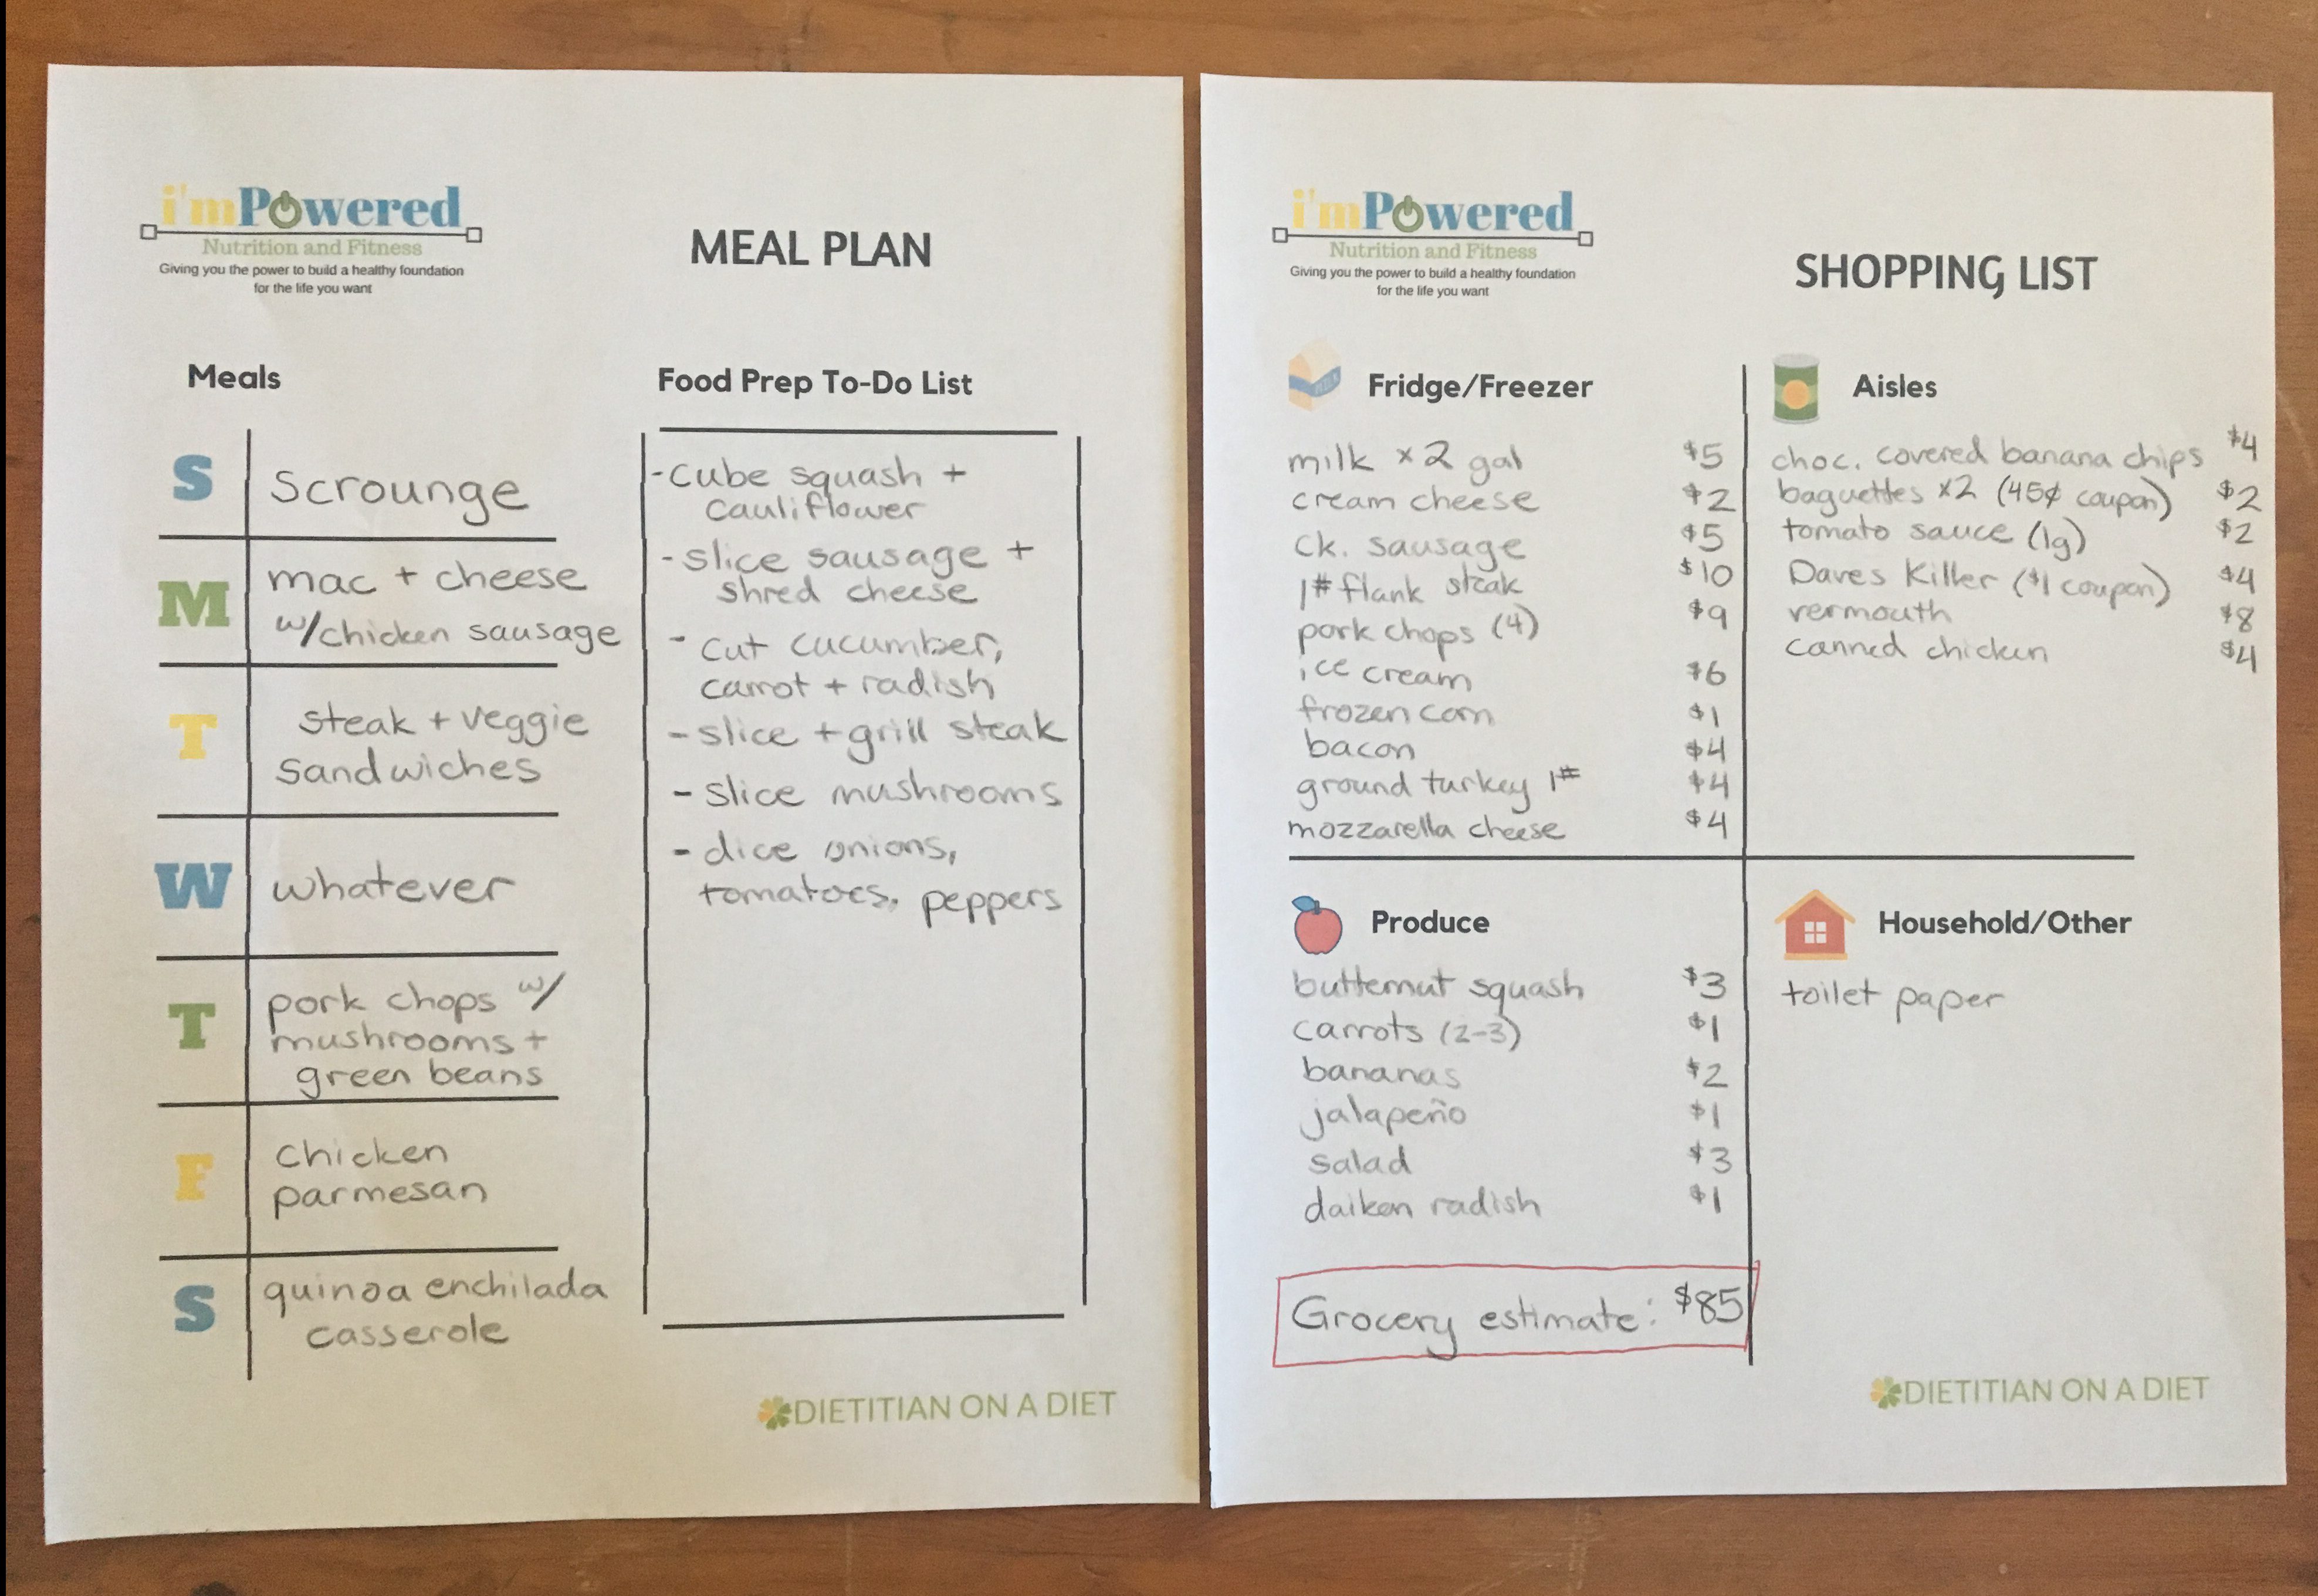 i'mPowered
Nutrition and Fitness
Giving you the power to build a healthy foundation
for the life you want
MEAL PLAN
Meals
S
Scrounge
M
mac + cheese
w/chicken sausage
T
steak + veggie
sandwiches
W
whatever
T
pork chops w/
mushrooms +
green beans
F
chicken
parmesan
S
quinoa enchilada
casserole
Food Prep To-Do List
- cube squash +
cauliflower
- slice sausage +
shred cheese
- cut cucumber,
carrot + radish
- slice + grill steak
- slice mushrooms
- dice onions,
tomatoes, peppers
DIETITIAN ON A DIET
i'mPowered
Nutrition and Fitness
Giving you the power to build a healthy foundation
for the life you want
SHOPPING LIST
MILK
Fridge/Freezer
milk x2 gal $5
cream cheese $2
ck. sausage $5
1# flank steak $10
pork chops (4) $9
ice cream $6
frozen corn $1
bacon $4
ground turkey 1# $4
mozzarella cheese $4
Aisles
choc. covered banana chips $4
baguettes x2 (45¢ coupon) $2
tomato sauce (lg) $2
Daves Killer ($1 coupon) $4
vermouth $8
canned chicken $4
Produce
butternut squash $3
carrots (2-3) $1
bananas $2
jalapeño $1
salad $3
daiken radish $1
Grocery estimate: $85
Household/Other
toilet paper
DIETITIAN ON A DIET